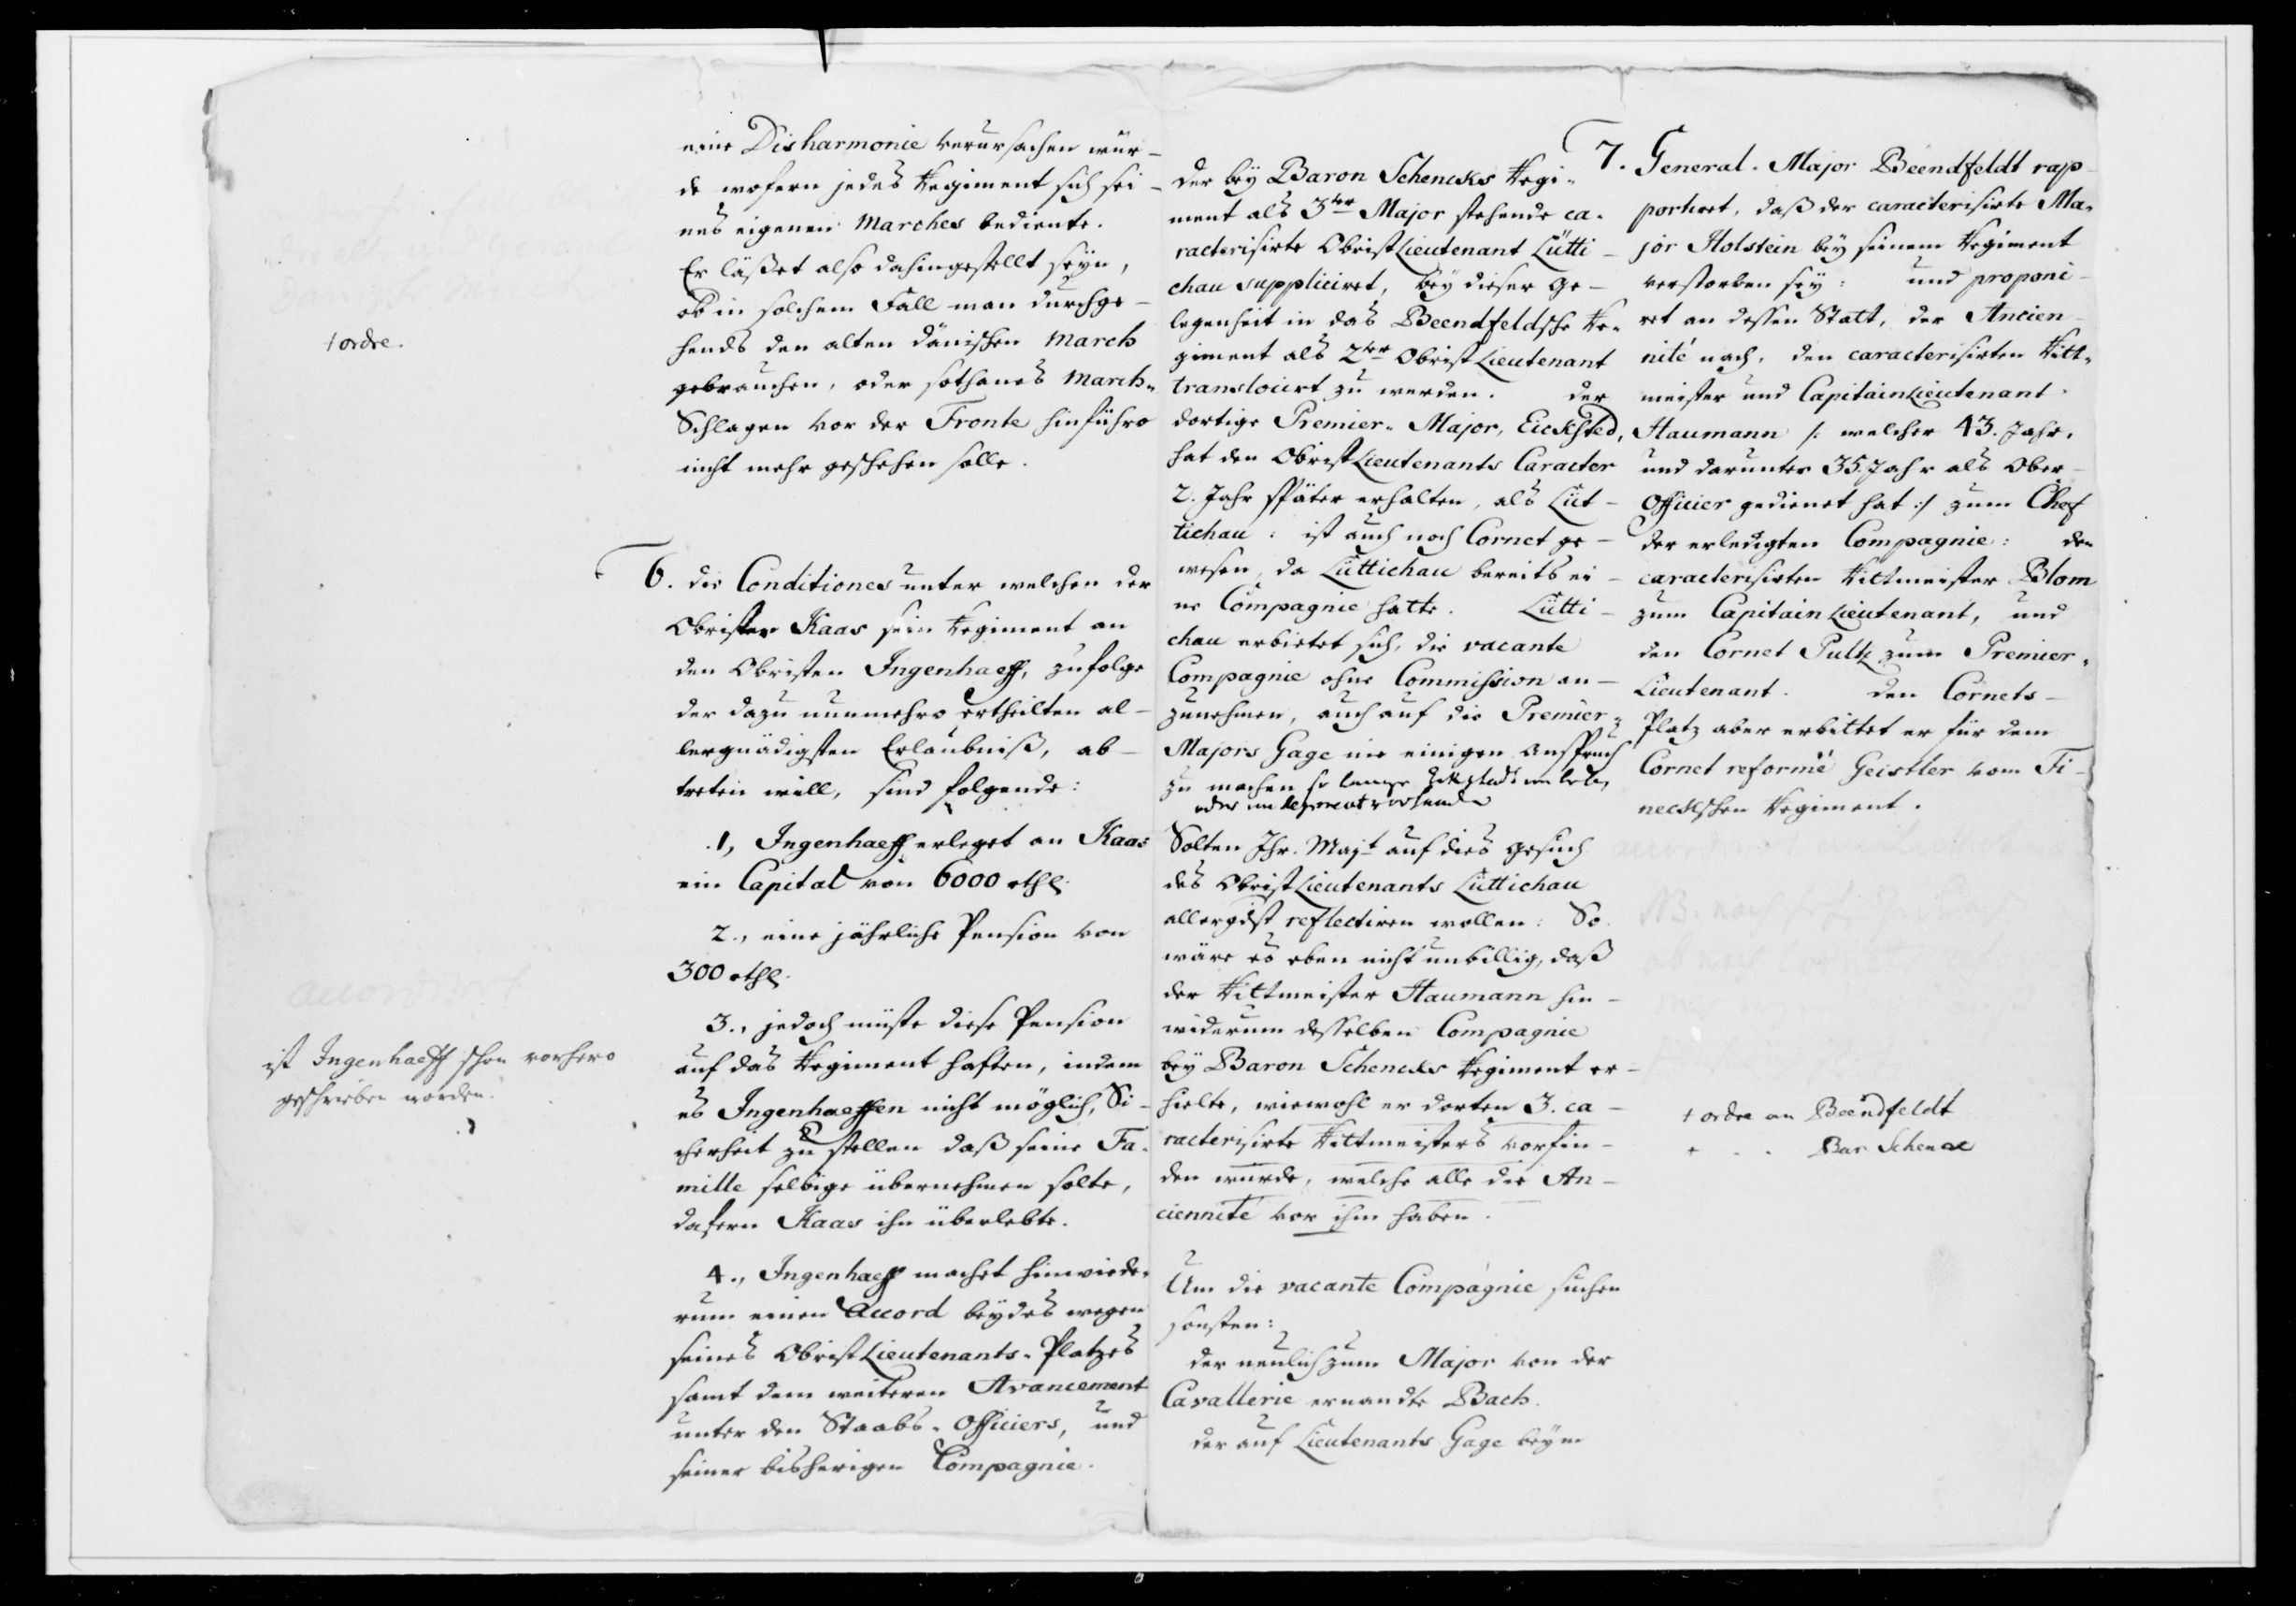 eine Disharmonie verursachen wür-
de wofern jedes Regiment sich sei-
nes eigenen Marches bediente.
Er läßet also dahingestellt seyn,
ob in solchem Fall man durchge-
hends den alten dänischen March
gebrauchen, oder sothanes March-
Schlagen vor der Fronte hinführo
nicht mehr geschehen solle.
+ ordre.
6. die Conditiones unter welchen der
Obrister Kaas sein Regiment an
den Obristen Ingenhaeff, zufolge
der dazu nunmehro ertheilten al-
lergnädigsten Erlaubniß, ab-
treten will, sind folgende:
1, Ingenhaeff erleget an Kaas
ein Capital von 6000 rthl.
2., eine jährliche Pension von
300 rthl.
3., jedoch müste diese Pension
auf das Regiment haften, indem
es Ingenhaeffen nicht möglich, Si-
cherheit zu stellen daß seine Fa-
mille selbige übernehmen solte,
dafern Kaas ihn überlebte.
4., Ingenhaeff machet hinwiede-
rum einen Accord beydes wegen
seines ObristLieutenants-Platzes
samt dem weiteren Avancement
unter den Staabs-Officiers, und
seiner bisherigen Compagnie.
accordirt
ist Ingenhaeff schon vorhero
geschrieben worden.
der bey Baron Schencks Regi-
ment als 3ter Major stehende ca-
racterisirte ObristLieutenant Lütti-
chau suppliciret, bey dieser Ge-
legenheit in das Beendfeldsche Re-
giment als 2ter ObristLieutenant
transloirt zu werden. der
dortige Premier-Major, Eicksted,
hat den ObristLieutenants Caracter
2. Jahr später erhalten, als Lüt-
tichau: ist auch noch Cornet ge-
wesen, da Lüttichau bereits ei-
ne Compagnie hatte. Lütti-
chau erbietet sich, die vacante
Compagnie ohne Commission an-
zunehmen, auch auf die Premier-
Majors Gage nie einigen Anspruch
zu machen so lange
oder im Regiment
Solten Ihr. Majt auf dies Gesuch
des ObristLieutenants Lüttichau
allergdst reflectiren wollen: So
wäre es eben nicht unbillig, daß
der Rittmeister Haumann hin-
widerum desselben Compagnie
bey Baron Schencks Regiment er-
hielte, wiewohl er dorten 3. ca-
racterisirte Rittmeisters vorfin-
den wurde, welche alle die An-
ciennité vor ihm haben.
Um die vacante Compagnie suchen
sonsten:
der neulich zum Major von der
Cavallerie ernandte Bach.
der auf Lieutenants Gage beym
7. General-Major Beendfeldt rap-
portiret, daß der caracterisirte Ma-
jor Holstein bey seinem Regiment
verstorben sey: und proponi-
ret an dessen Statt, der Ancien-
nité nach, den caracterisirten Ritt-
meister und CapitainLieutenant
Haumann /: welcher 43. Jahr,
und darunter 35. Jahr als Ober-
Officier gedienet hat :/ zum Chef
der erledigten Compagnie: den
caracterisirten Rittmeister Blom
zum CapitainLieutenant, und
den Cornet Pultz zum Premier-
Lieutenant. den Cornets-
Platz aber erbittet er für dem
Cornet reformé Geistler vom Fi-
neckschen Regiment.
+ ordre an Beendfeldt
+ - - Bar Schenck